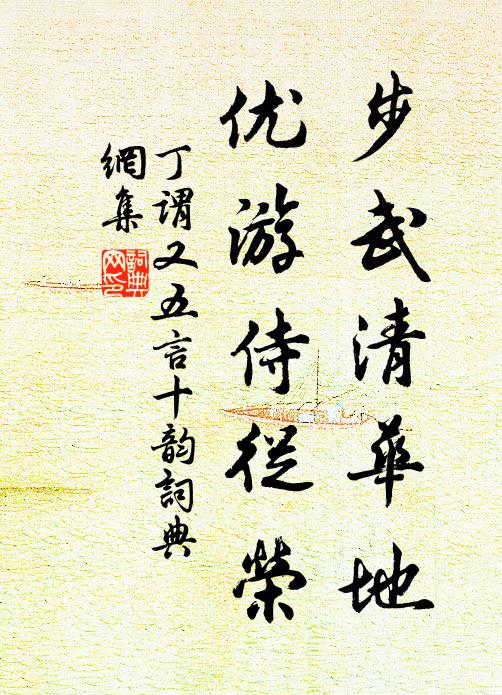 步武清華地
优游侍從榮
丁謂又五言十韵詞典
網集
詞典
网印